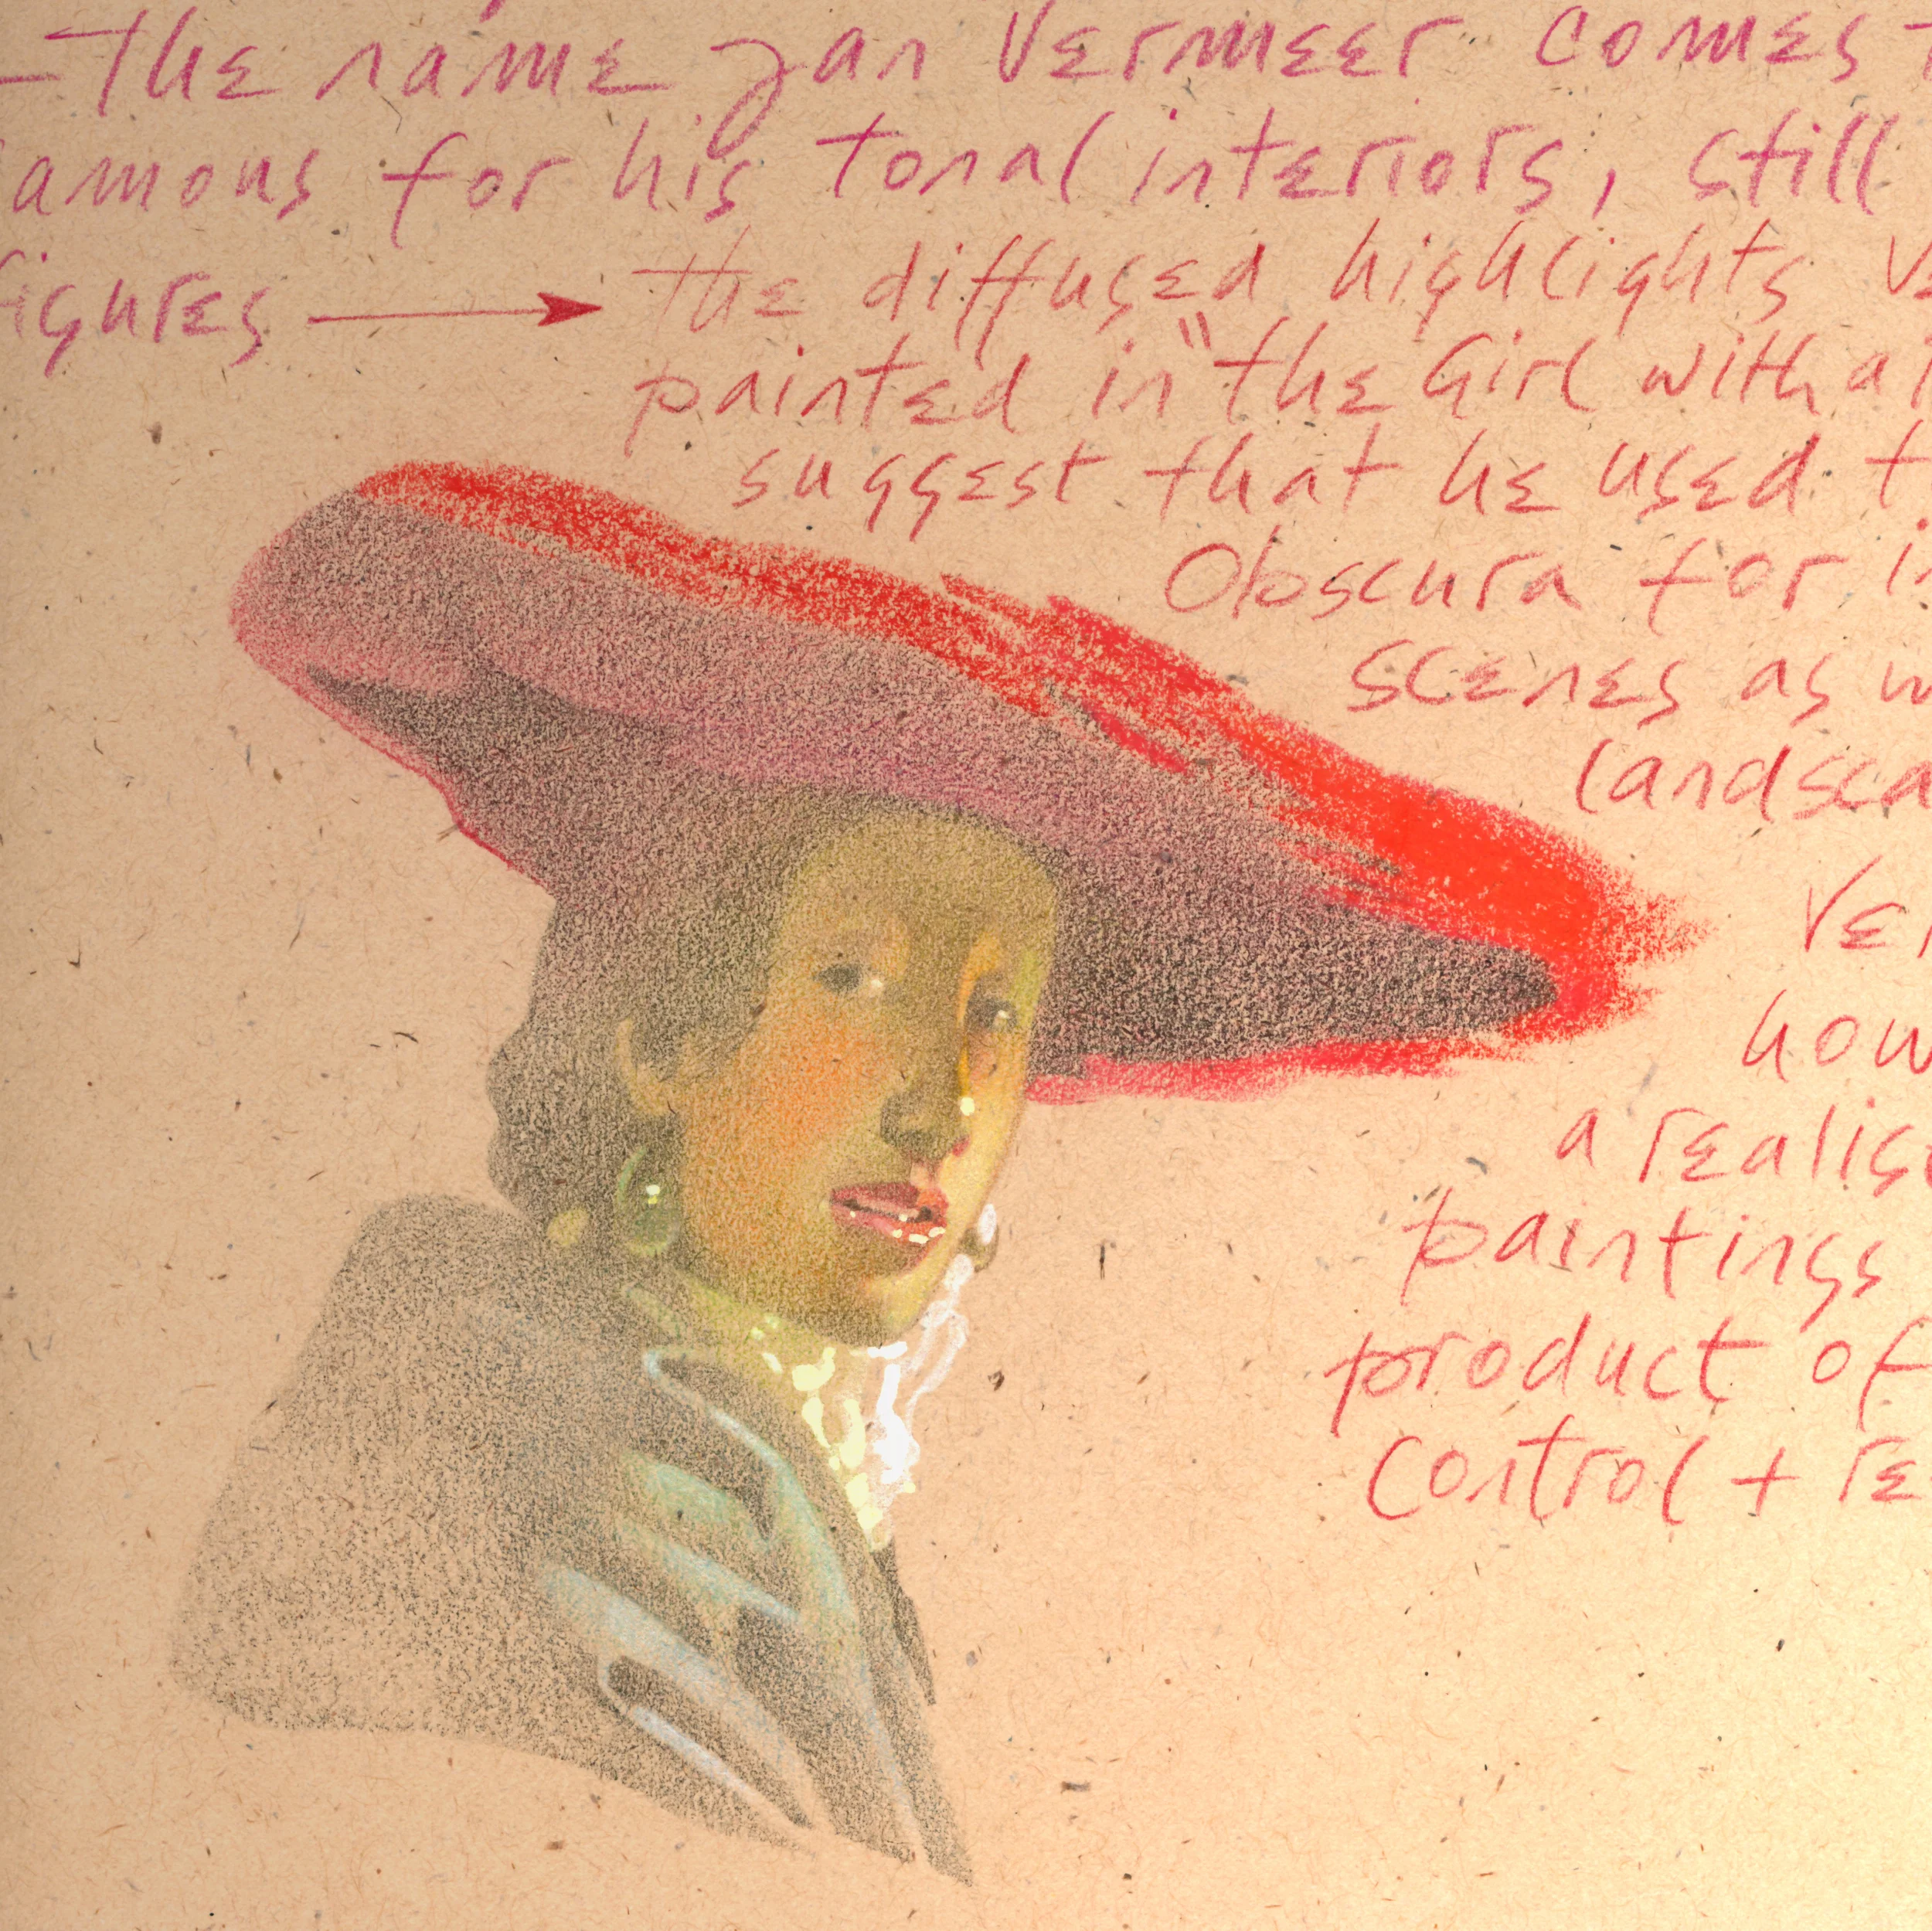 - the name Jan Vermeer comes
famous for his tonal interiors, still
figures → the diffused highlights
painted in "the Girl with a
suggest that he used
Obscura for
scenes as
landsca
how
a realis
paintings
product of
control + re